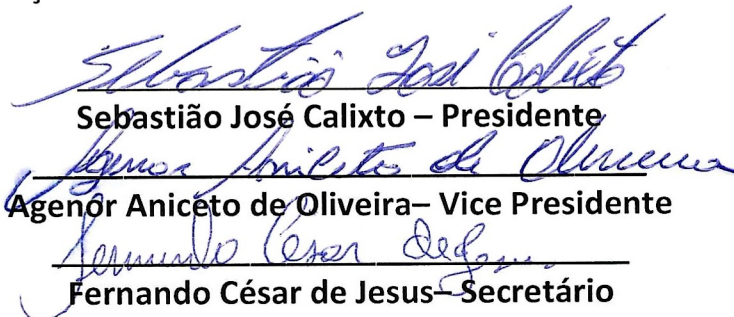 Sebastião José Calixto
Sebastião José Calixto – Presidente
Agenor Aniceto de Oliveira
Agenor Aniceto de Oliveira– Vice Presidente
Fernando Cesar de Jesus
Fernando César de Jesus– Secretário